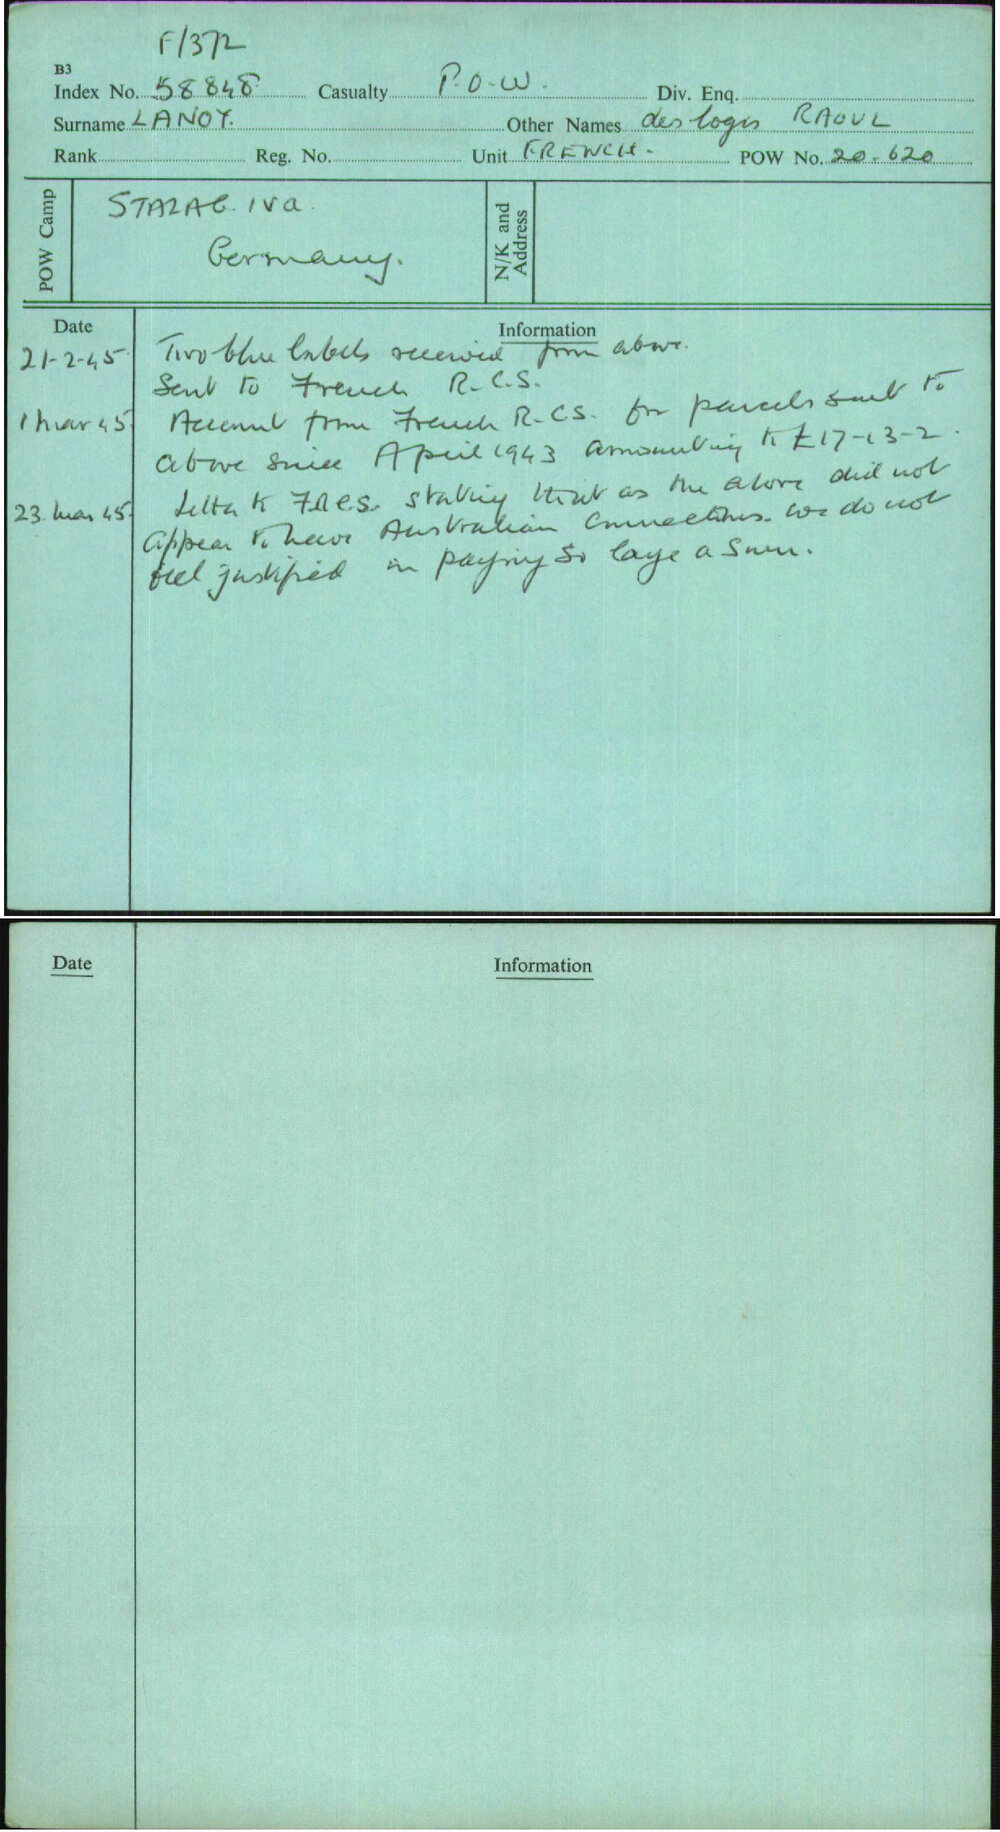 F/372
B3
Index No. 58848 Casualty P.O.W. Div. Enq.
Surname LANOY. Other Names des logis RAOUL
Rank Reg. No. Unit FRENCH. POW No. 20.620
POW Camp
STALAG IVa.
Germany.
N/K and Address
Date Information
21-2-45 Two blue labels received from above.
Sent to French R.C.S.
1 Mar 45 Account from French R.C.S. for parcels sent to
above since April 1943 amounting to £17-13-2.
23 Mar 45 Letter to F.R.C.S. stating that as the above did not
appear to have Australian connections. we do not
feel justified in paying so large a sum.
Date Information